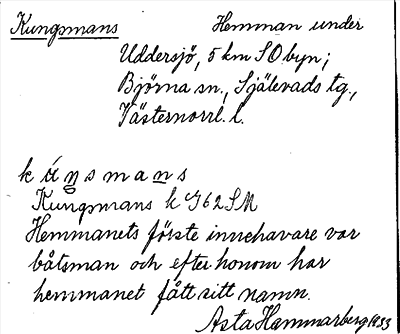 Kungsmans Hemman under
Uddersjö, 5 km SO byn;
Björna sn., Själevads tg.,
Västernorrl. l.
k ú ŋ s m a n s
Kungsmans k G62SM
Hemmanets förste innehavare var
båtsman och efter honom har
hemmanet fått sitt namn.
Asta Hammarberg 1933